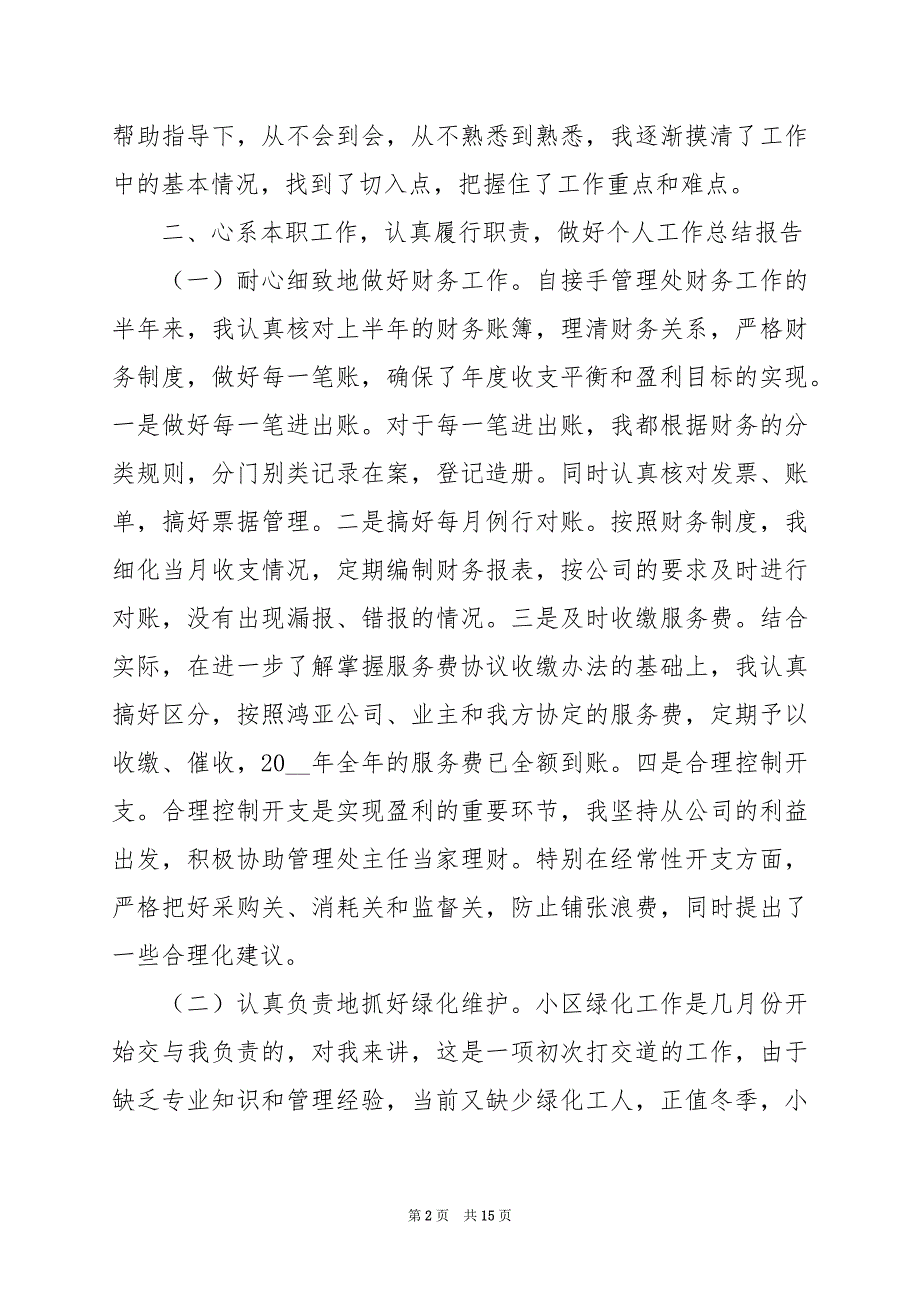 帮助指导下，从不会到会，从不熟悉到熟悉，我逐渐摸清了工作
中的基本情况，找到了切入点，把握住了工作重点和难点。
二、心系本职工作，认真履行职责，做好个人工作总结报告
（一）耐心细致地做好财务工作。自接手管理处财务工作的
半年来，我认真核对上半年的财务账簿，理清财务关系，严格财
务制度，做好每一笔账，确保了年度收支平衡和盈利目标的实现。
一是做好每一笔进出账。对于每一笔进出账，我都根据财务的分
类规则，分门别类记录在案，登记造册。同时认真核对发票、账
单，搞好票据管理。二是搞好每月例行对账。按照财务制度，我
细化当月收支情况，定期编制财务报表，按公司的要求及时进行
对账，没有出现漏报、错报的情况。三是及时收缴服务费。结合
实际，在进一步了解掌握服务费协议收缴办法的基础上，我认真
搞好区分，按照鸿亚公司、业主和我方协定的服务费，定期予以
收缴、催收，20__年全年的服务费已全额到账。四是合理控制开
支。合理控制开支是实现盈利的重要环节，我坚持从公司的利益
出发，积极协助管理处主任当家理财。特别在经常性开支方面，
严格把好采购关、消耗关和监督关，防止铺张浪费，同时提出了
一些合理化建议。
（二）认真负责地抓好绿化维护。小区绿化工作是几月份开
始交与我负责的，对我来讲，这是一项初次打交道的工作，由于
缺乏专业知识和管理经验，当前又缺少绿化工人，正值冬季，小
第 2 页 共 15 页